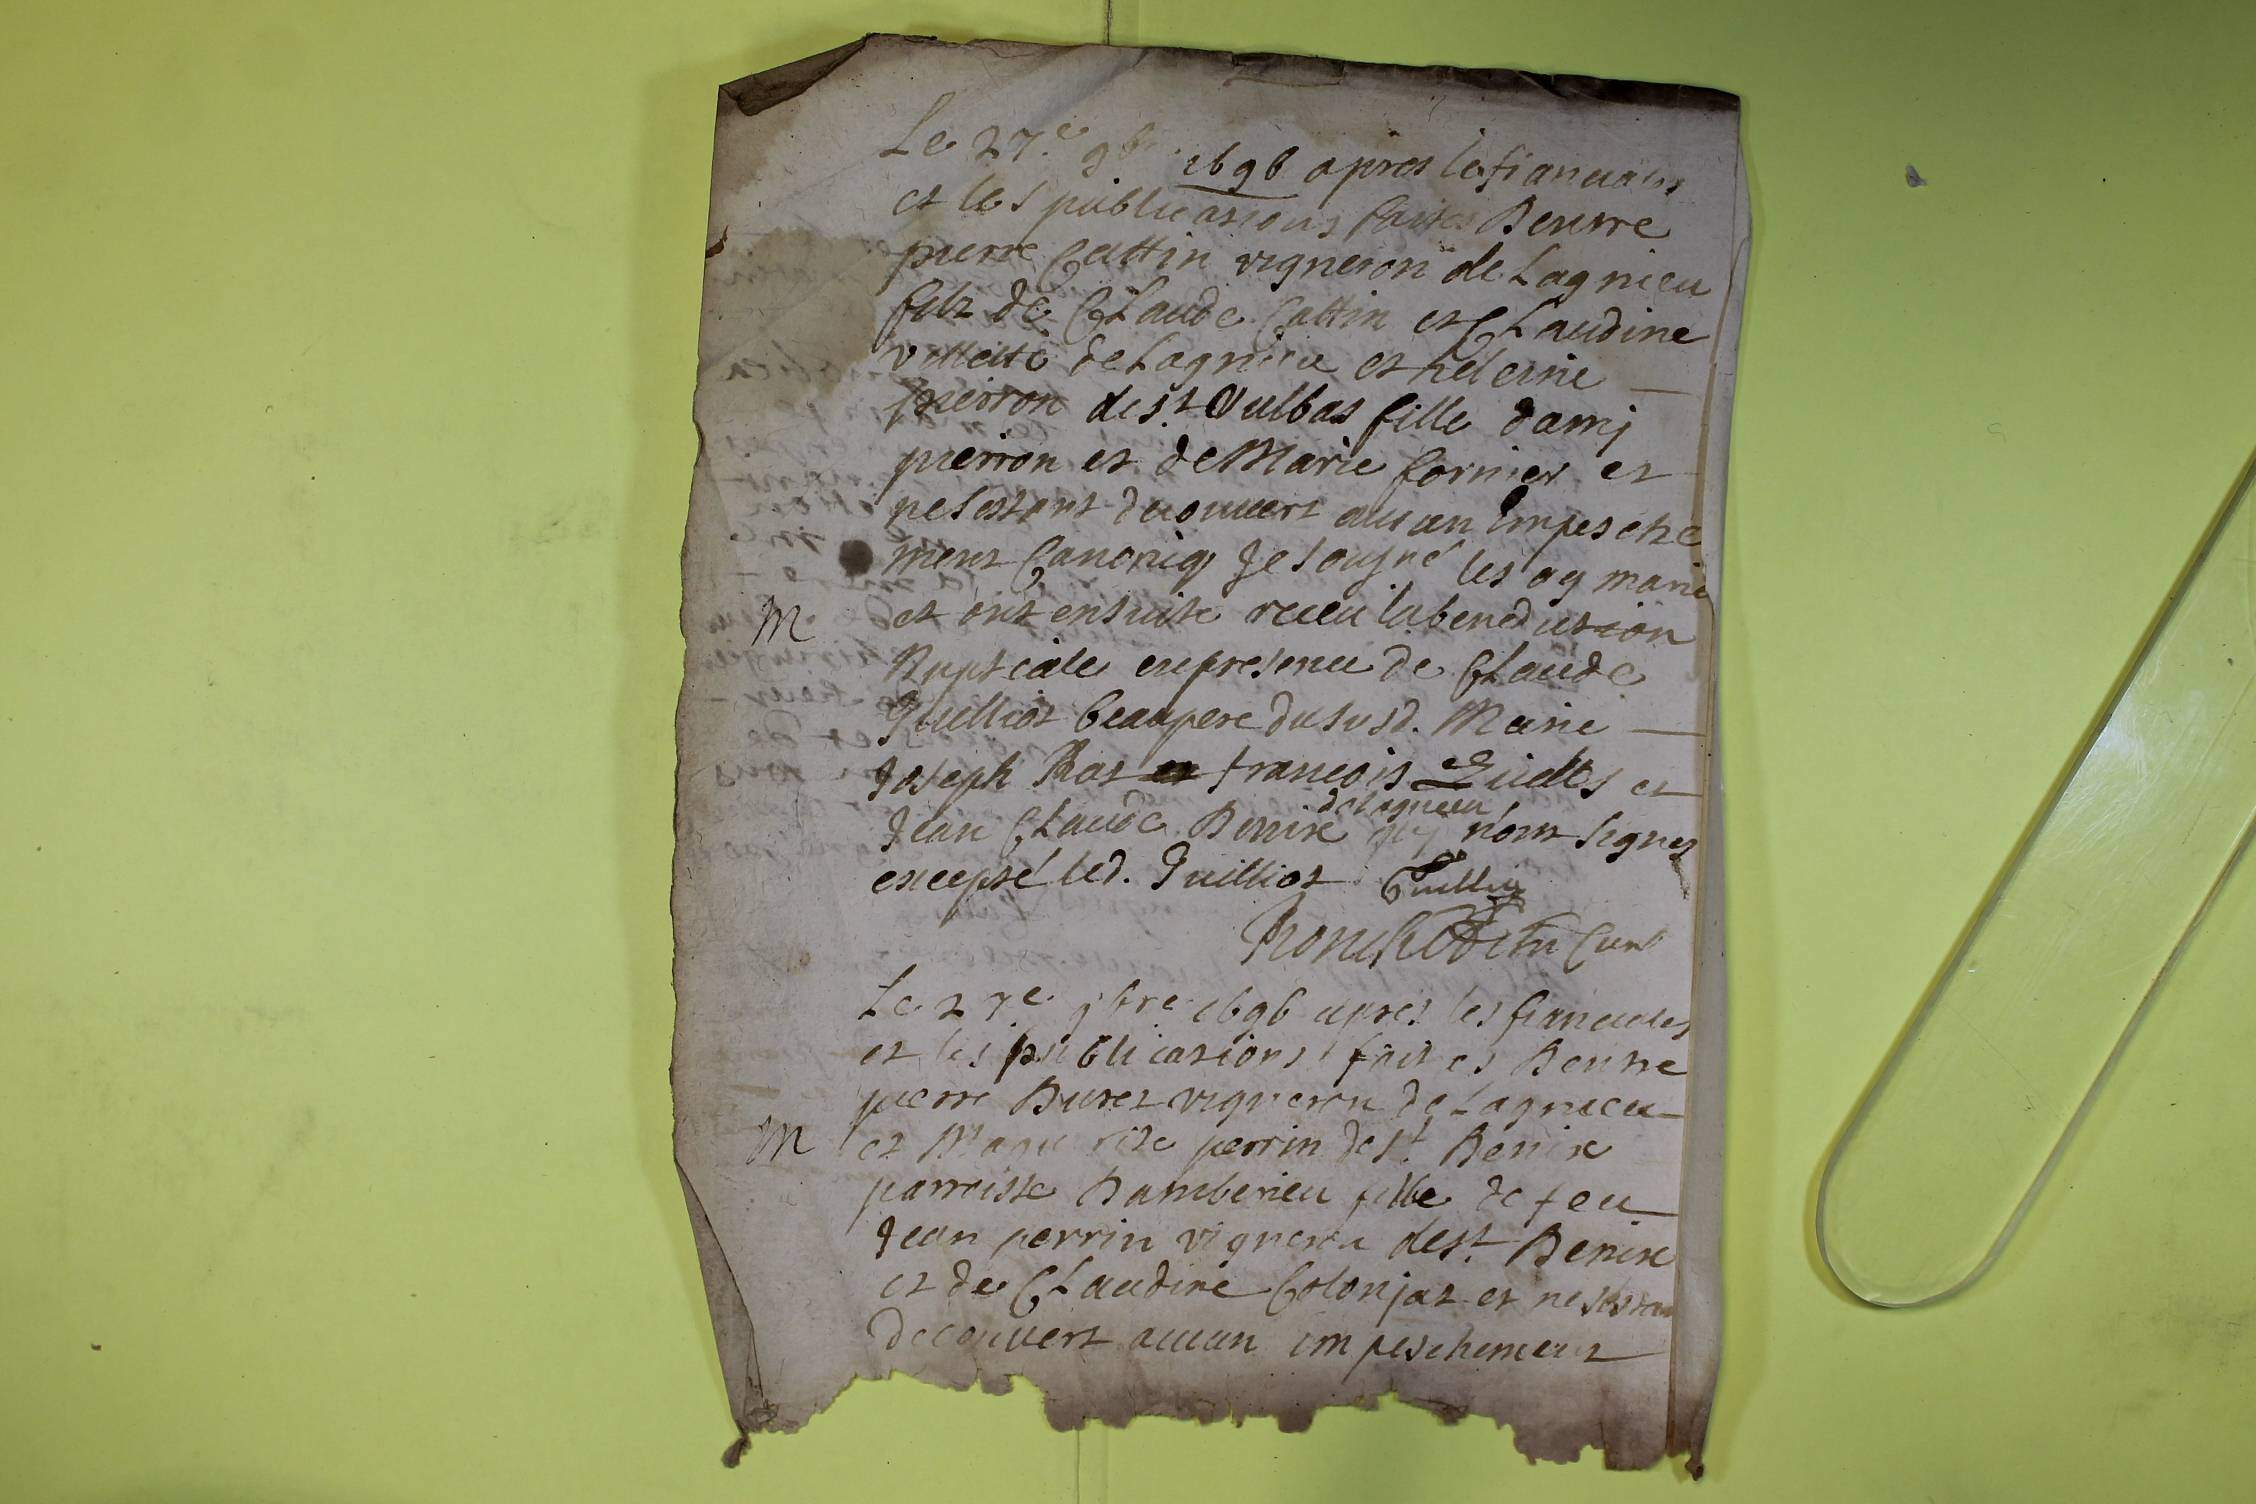 Le 27.e 9b 1696 apres les fiancailles
et les publications faites Dentre
pierre Cattin vigneron de Lagnieu
filz de Claude Cattin et Claudine
de Lagnieu et heleine
pierron de st. Vulbas fille damj
pierron et de Marie fornier et
ne sestant decouvert aucun impesche
ment Canoniq Je sousigné les ay marié
M et ont ensuite receu la benediction
Nuptiale en presence de Claude
Guilliot beaupere du susd. Marié
Joseph Rat francois et
de Lagnieu
Jean Claude Benix qui nont signez
excepté led. Guilliot Guilliot
Curé
Le 27e 9bre 1696 apres les fiancailles
et les publications faites Dentre
pierre Buret vigneron de Lagnieu
M et Marguerite perrin de st. Benix
parroisse Damberieu fille de feu
Jean perrin vigneron de st. Benix
et de Claudine Colonjat et ne sestant
decouvert aucun impeschement